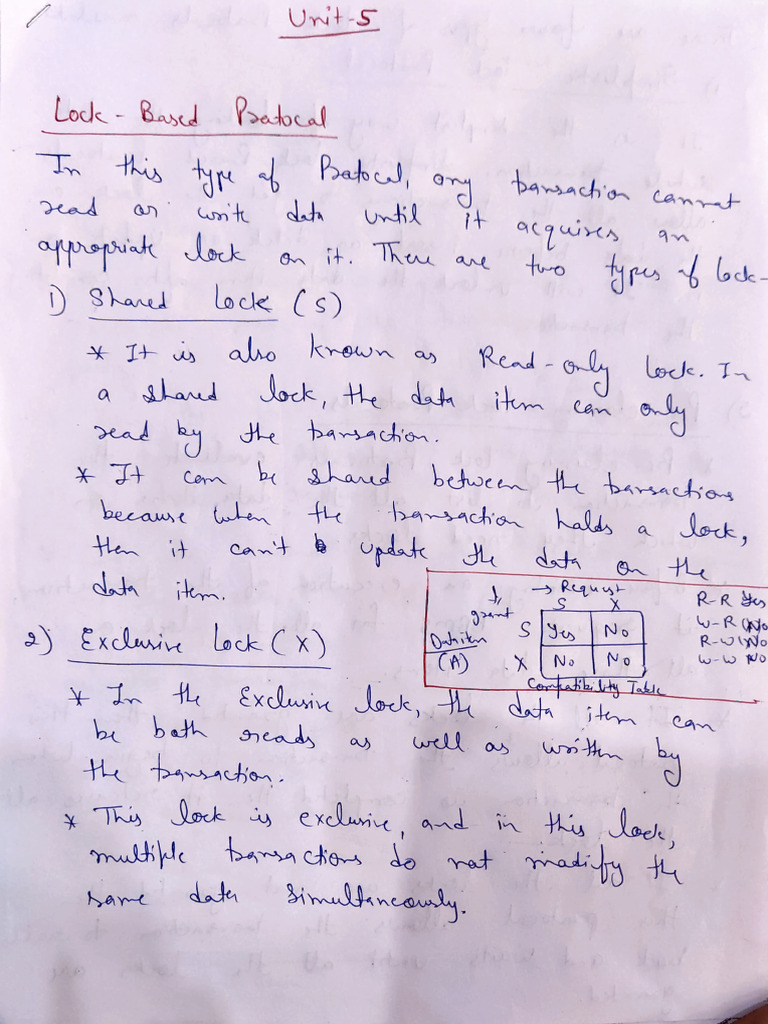 Unit-5
Lock-Based Protocal
In this type of Protocal, any transaction cannot
read or write data until it acquires an
appropriate lock on it. There are two types of lock-
1) Shared Lock (S)
* It is also known as Read-only lock. In
a shared lock, the data item can only
read by the transaction.
* It can be shared between the transactions
because when the transaction holds a lock,
then it can't update the data on the
data item.
→ Request
grant
S X
S Yes No
Data item
(A)
X No No
Compatibility Table
R-R Yes
W-R No
R-W No
W-W No
2) Exclusive Lock (X)
* In the Exclusive lock, the data item can
be both reads as well as written by
the transaction.
* This lock is exclusive, and in this lock,
multiple transactions do not modify the
same data simultaneously.